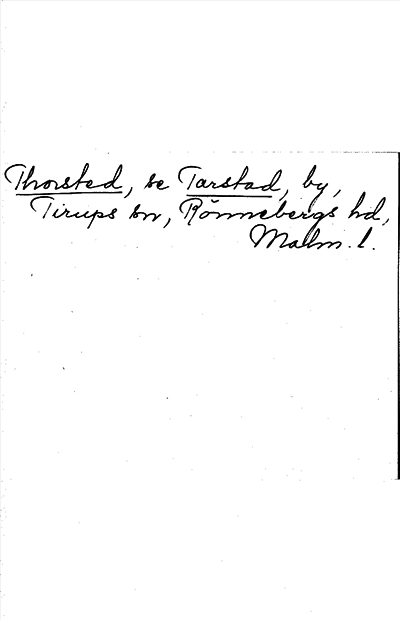 Thorsted, se Tarstad, by,
Tirups sn, Rönnebergs hd,
Malm. l.